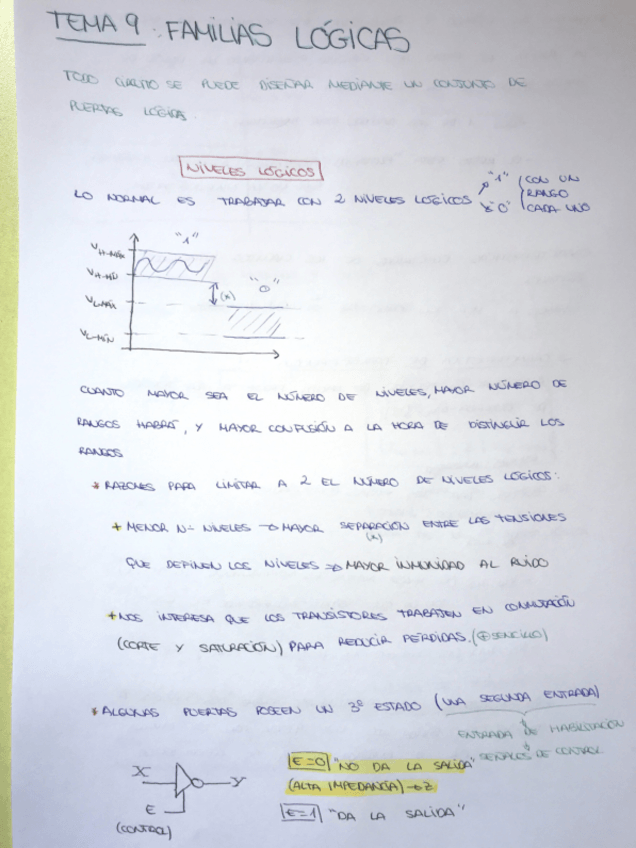 TEMA 9: FAMILIAS LÓGICAS
TODO CIRCUITO SE PUEDE DISEÑAR MEDIANTE UN CONJUNTO DE
PUERTAS LÓGICAS.
NIVELES LÓGICOS
LO NORMAL ES TRABAJAR CON 2 NIVELES LÓGICOS "1" "0" CON UN
RANGO
CADA UNO
"1"
"0"
VH-MÁX
VH-MÍN
(*)
VL-MÁX
VL-MÍN
CUANTO MAYOR SEA EL NÚMERO DE NIVELES, MAYOR NÚMERO DE
RANGOS HABRÁ, Y MAYOR CONFUSIÓN A LA HORA DE DISTINGUIR LOS
RANGOS
* RAZONES PARA LIMITAR A 2 EL NÚMERO DE NIVELES LÓGICOS:
+ MENOR Nº NIVELES → MAYOR SEPARACIÓN ENTRE LAS TENSIONES
(*)
QUE DEFINEN LOS NIVELES → MAYOR INMUNIDAD AL RUIDO
+ NOS INTERESA QUE LOS TRANSISTORES TRABAJEN EN CONMUTACIÓN
(CORTE Y SATURACIÓN) PARA REDUCIR PÉRDIDAS. (⊕ SENCILLO)
* ALGUNAS PUERTAS POSEEN UN 3º ESTADO (UNA SEGUNDA ENTRADA)
ENTRADA DE HABILITACIÓN
SEÑALES DE CONTROL
X
Y
E
(CONTROL)
E=0 "NO DA LA SALIDA"
(ALTA IMPEDANCIA) → Z
E=1 "DA LA SALIDA"